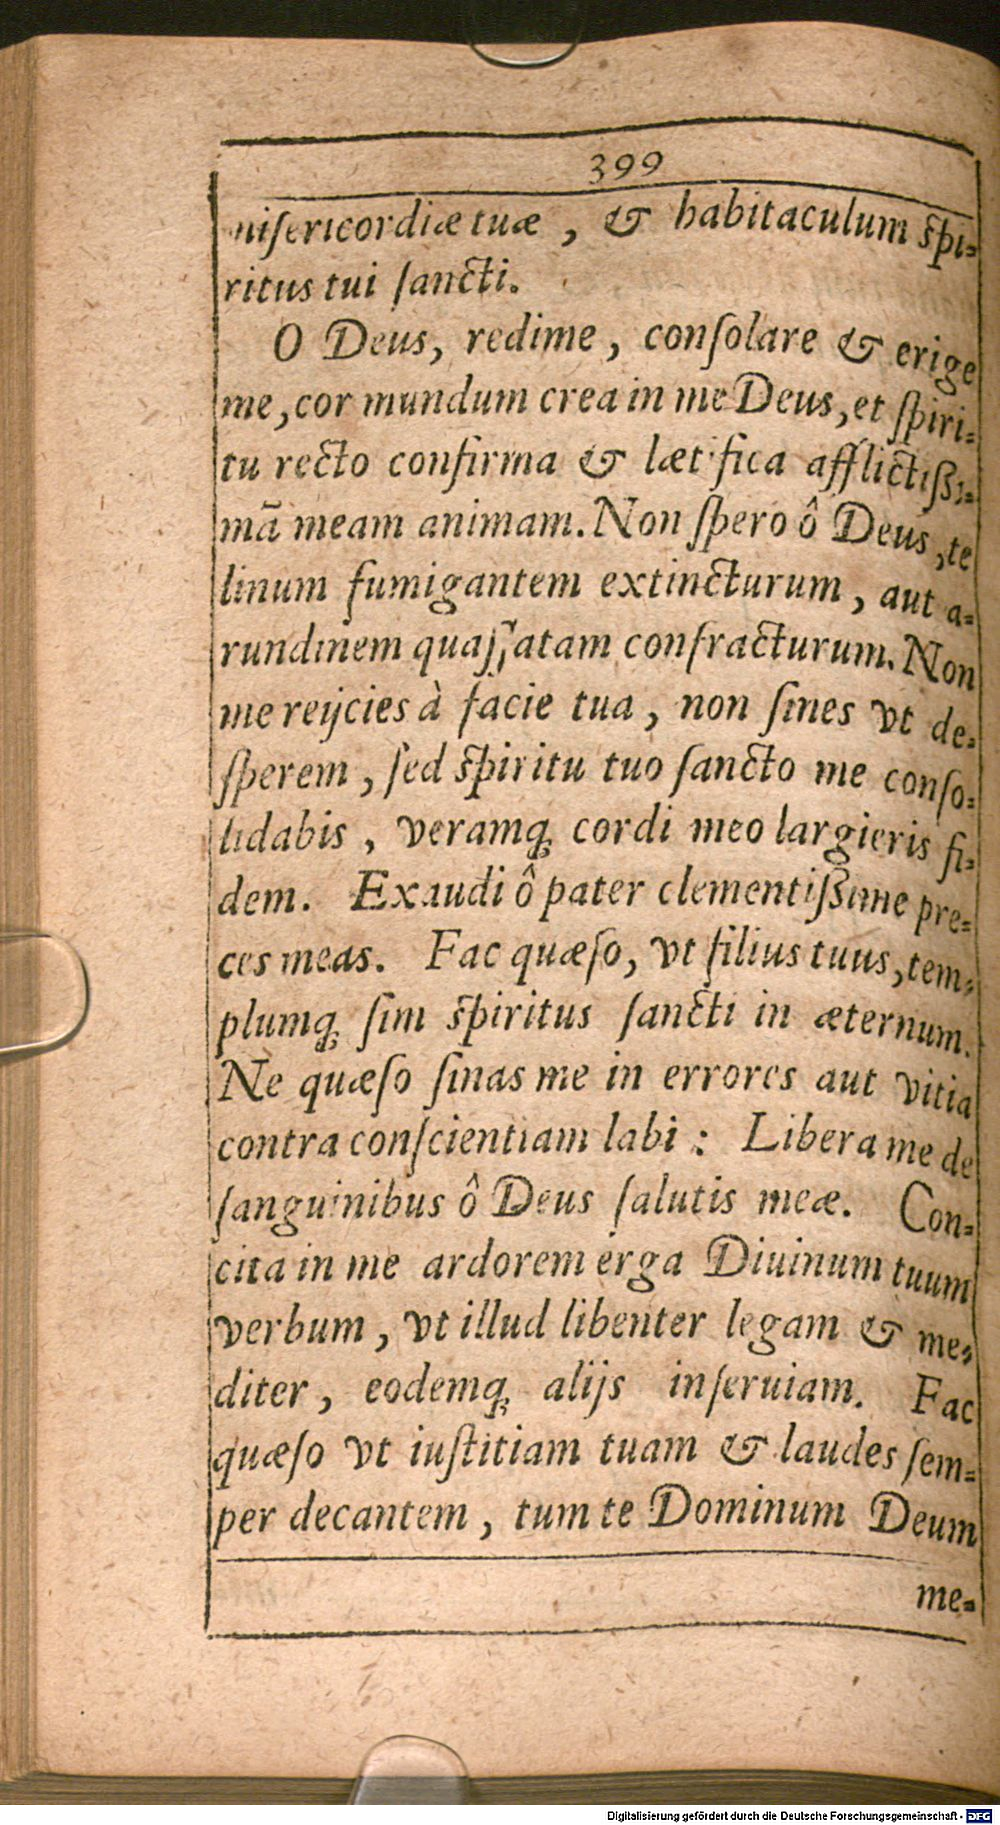 399
misericordiæ tuæ, & habitaculum ſpi-
ritus tui ſancti.
O Deus, redime, conſolare & erige
me, cor mundum crea in me Deus, et ſpiri-
tu recto confirma & lætifica afflictißi-
mā meam animam. Non ſpero ô Deus, te
linum fumigantem extincturum, aut a-
rundinem quaſſatam confracturum. Non
me reijcies à facie tua, non ſines vt de-
ſperem, ſed ſpiritu tuo ſancto me conſo-
lidabis, veramq; cordi meo largieris fi-
dem. Exaudi ô pater clementißime pre-
ces meas. Fac quæſo, vt filius tuus, tem-
plumq; ſim ſpiritus ſancti in æternum.
Ne quæſo ſinas me in errores aut vitia
contra conſcientiam labi: Libera me de
ſanguinibus ô Deus ſalutis meæ. Con-
cita in me ardorem erga Diuinum tuum
verbum, vt illud libenter legam & me-
diter, eodemq; alijs inſeruiam. Fac
quæſo vt iuſtitiam tuam & laudes ſem-
per decantem, tum te Dominum Deum
me-
Digitalisierung gefördert durch die Deutsche Forschungsgemeinschaft - DFG